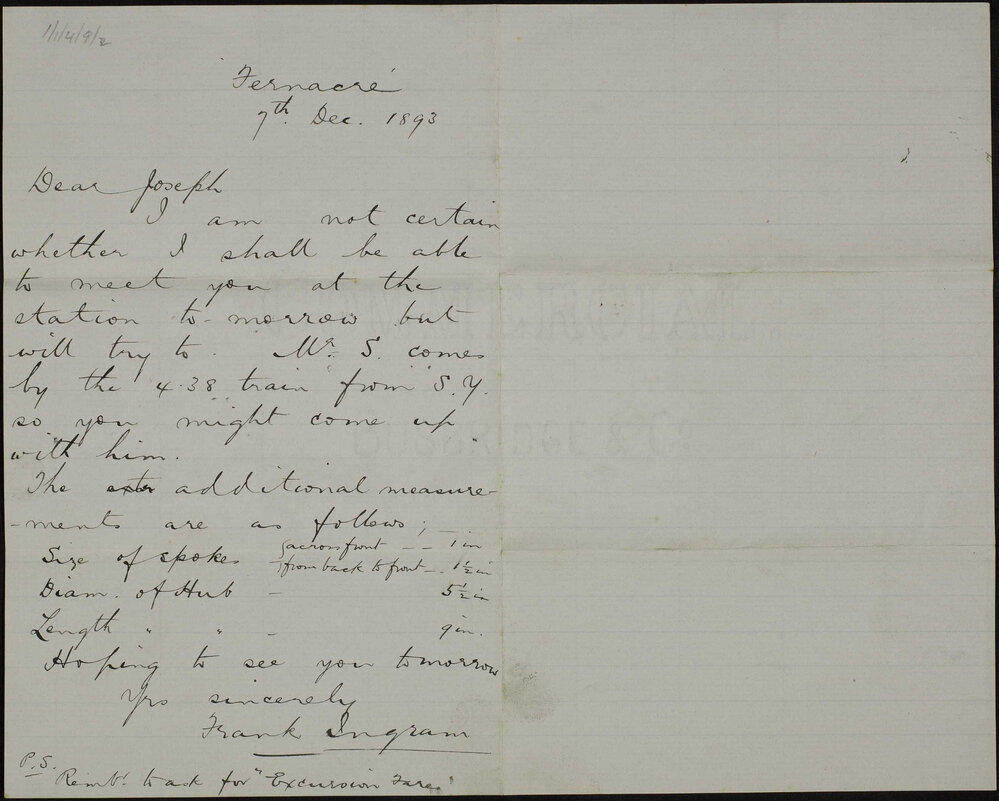 1/1/4/9/2
"Fernacre"
7th. Dec. 1893
Dear Joseph
I am not certain
whether I shall be able
to meet you at the
station to-morrow but
will try to. Mr. S. comes
by the 4.38 train from S.Y.
so you might come up
with him.
The additional measure-
-ments are as follows;
Size of spokes { across front - - 1 in
from back to front - 1 1/2 in
Diam. of Hub - 5 1/2 in
Length " " - 9 in.
Hoping to see you tomorrow
Yrs sincerely
Frank Ingram
P.S. Rembr. to ask for "Excursion Fare"